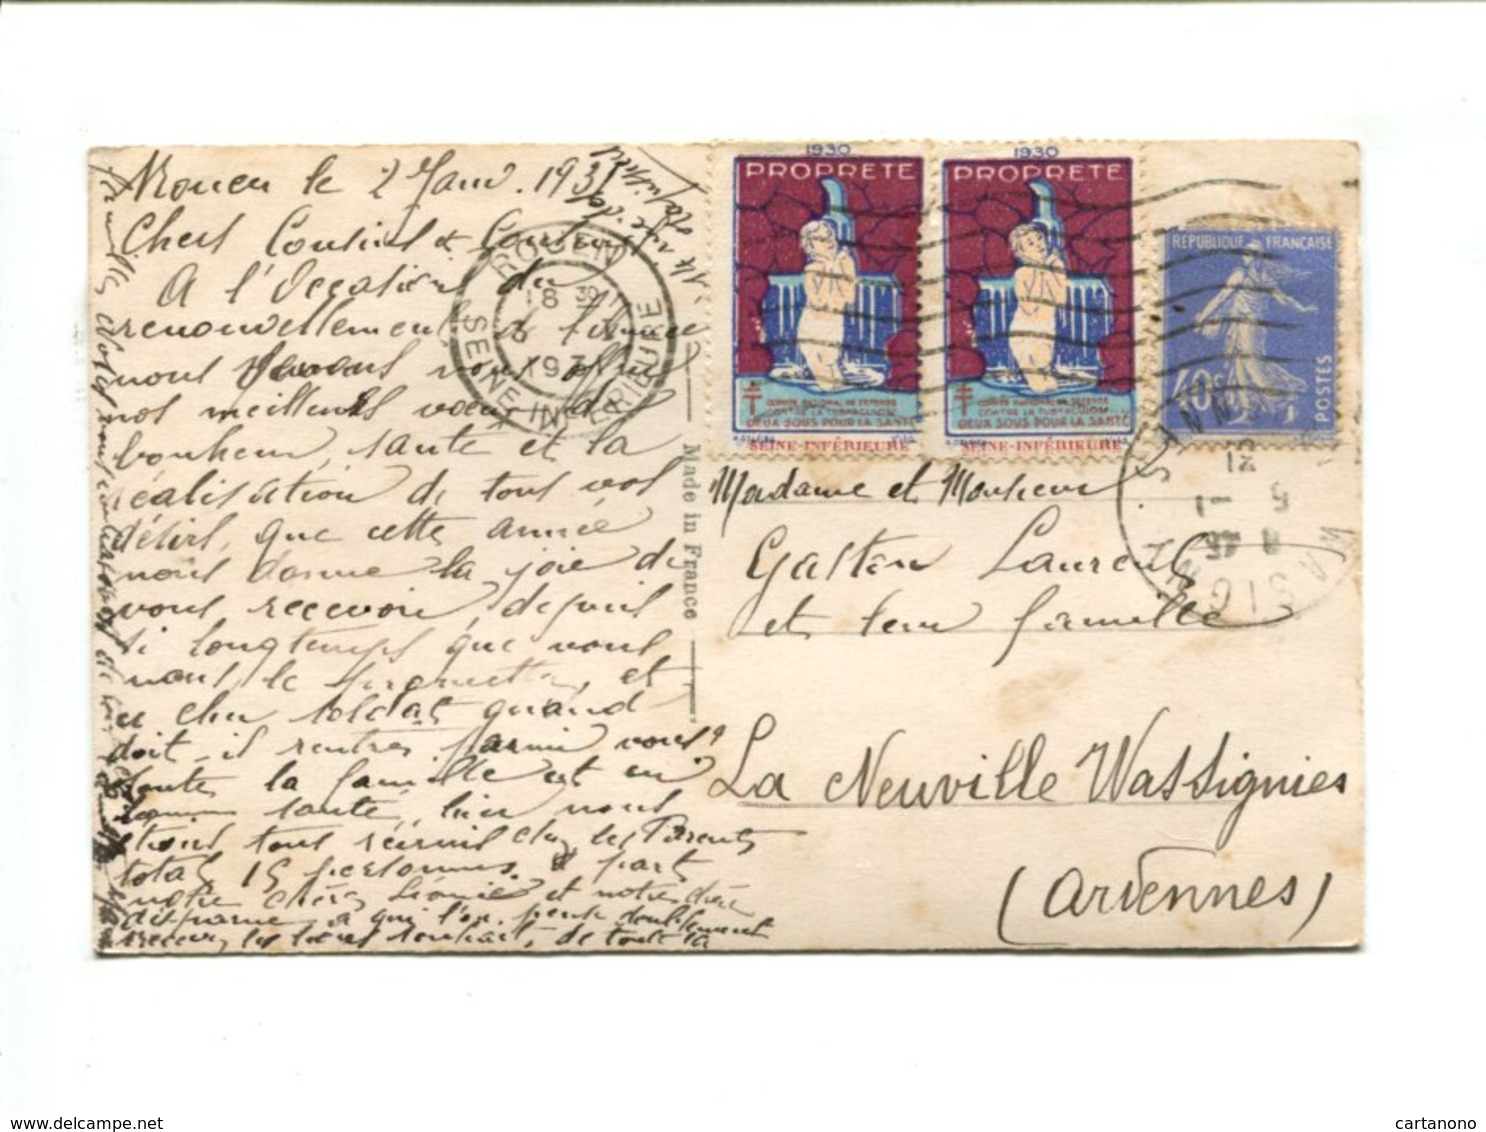 Rouen le 2 Janv. 1931
Chers Cousins & Cousines
A l'Occasion du
renouvellement de l'année
nous venons vous offrir
nos meilleurs vœux de
bonheur, santé et la
réalisation de tous vos
désirs, que cette année
nous donne la joie de
vous recevoir, depuis
si longtemps que vous
nous le promettez, et
ce cher soldat quand
doit-il rentrer parmi vous?
toute la famille est en
bonne santé, hier nous
étions tous réunis chez les Parents
total 15 personnes. à part
notre chère et notre chère
à qui l'on pense doublement
recevez les bons souhaits, de toute la
Made in France
ROUEN
18 30
3 1
1931
SEINE INFERIEURE
1930
PROPRETE
COMITE NATIONAL DE DEFENSE
CONTRE LA TUBERCULOSE
DEUX SOUS POUR LA SANTÉ
SEINE-INFÉRIEURE
1930
PROPRETE
COMITE NATIONAL DE DEFENSE
CONTRE LA TUBERCULOSE
DEUX SOUS POUR LA SANTÉ
SEINE-INFÉRIEURE
REPUBLIQUE FRANÇAISE
40c
POSTES
Madame et Monsieur
Gaston Laurent
et leur famille
La Neuville Wassignies
(Ardennes)
delcampe.net
cartanono